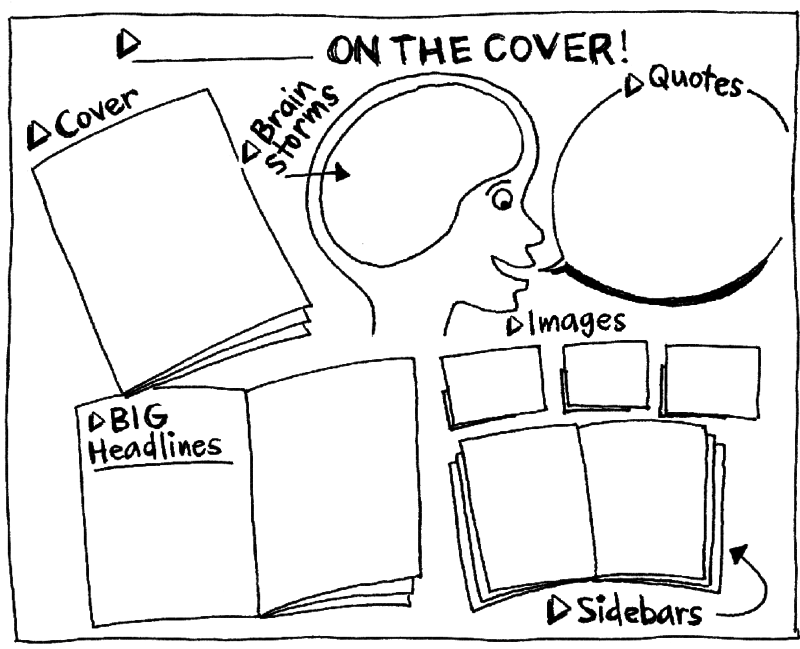 ________ ON THE COVER!
Cover
Brain
storms
Quotes
Images
BIG
Headlines
Sidebars